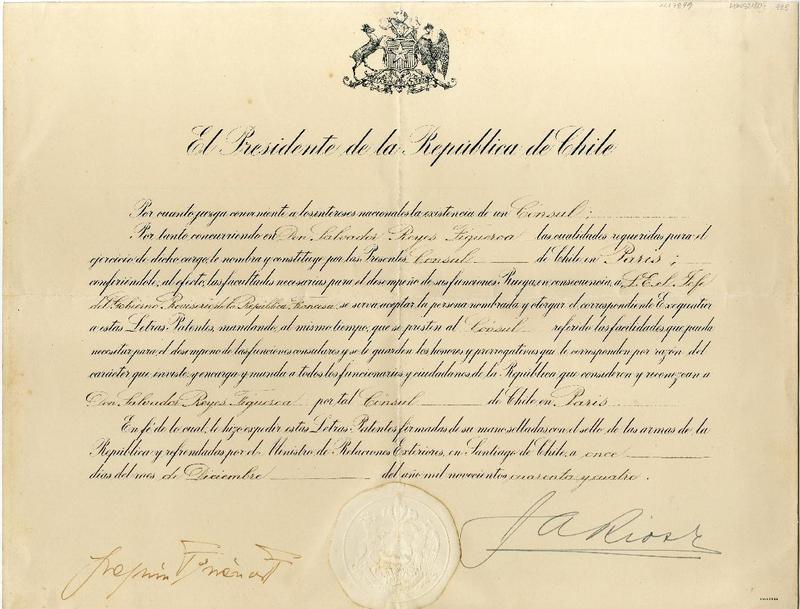 El Presidente de la República de Chile
Por cuanto juzga conveniente a los intereses nacionales la existencia de un Cónsul;
Por tanto concurriendo en Don Salvador Reyes Figueroa las cualidades requeridas para el
ejercicio de dicho cargo, le nombra y constituye por las Presentes Cónsul de Chile en París;
confiriéndole, al efecto, las facultades necesarias para el desempeño de sus funciones. Ruega, en consecuencia, a S.E. el Jefe
del Gobierno Provisorio de la República Francesa, se sirva aceptar la persona nombrada y otorgar el correspondiente Exequátur
a estas Letras Patentes, mandando, al mismo tiempo, que se presten al Cónsul referido las facilidades que pueda
necesitar para el desempeño de las funciones consulares y se le guarden los honores y prerrogativas que le corresponden por razón del
carácter que inviste y encarga y manda a todos los funcionarios y ciudadanos de la República que consideren y reconozcan a
Don Salvador Reyes Figueroa por tal Cónsul de Chile en París.
En fé de lo cual, le hizo expedir estas Letras Patentes firmadas de su mano selladas con el sello de las armas de la
República y refrendadas por el Ministro de Relaciones Exteriores, en Santiago de Chile, a once
días del mes de Diciembre del año mil novecientos cuarenta y cuatro.
J A Rios